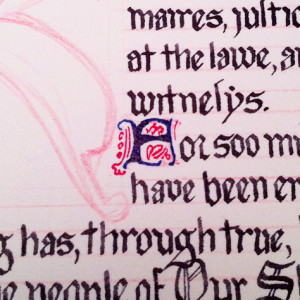 maires, justic
at the lawe, a
witnesys.
For soo m
have been en
g has, through true,
e people of Our S